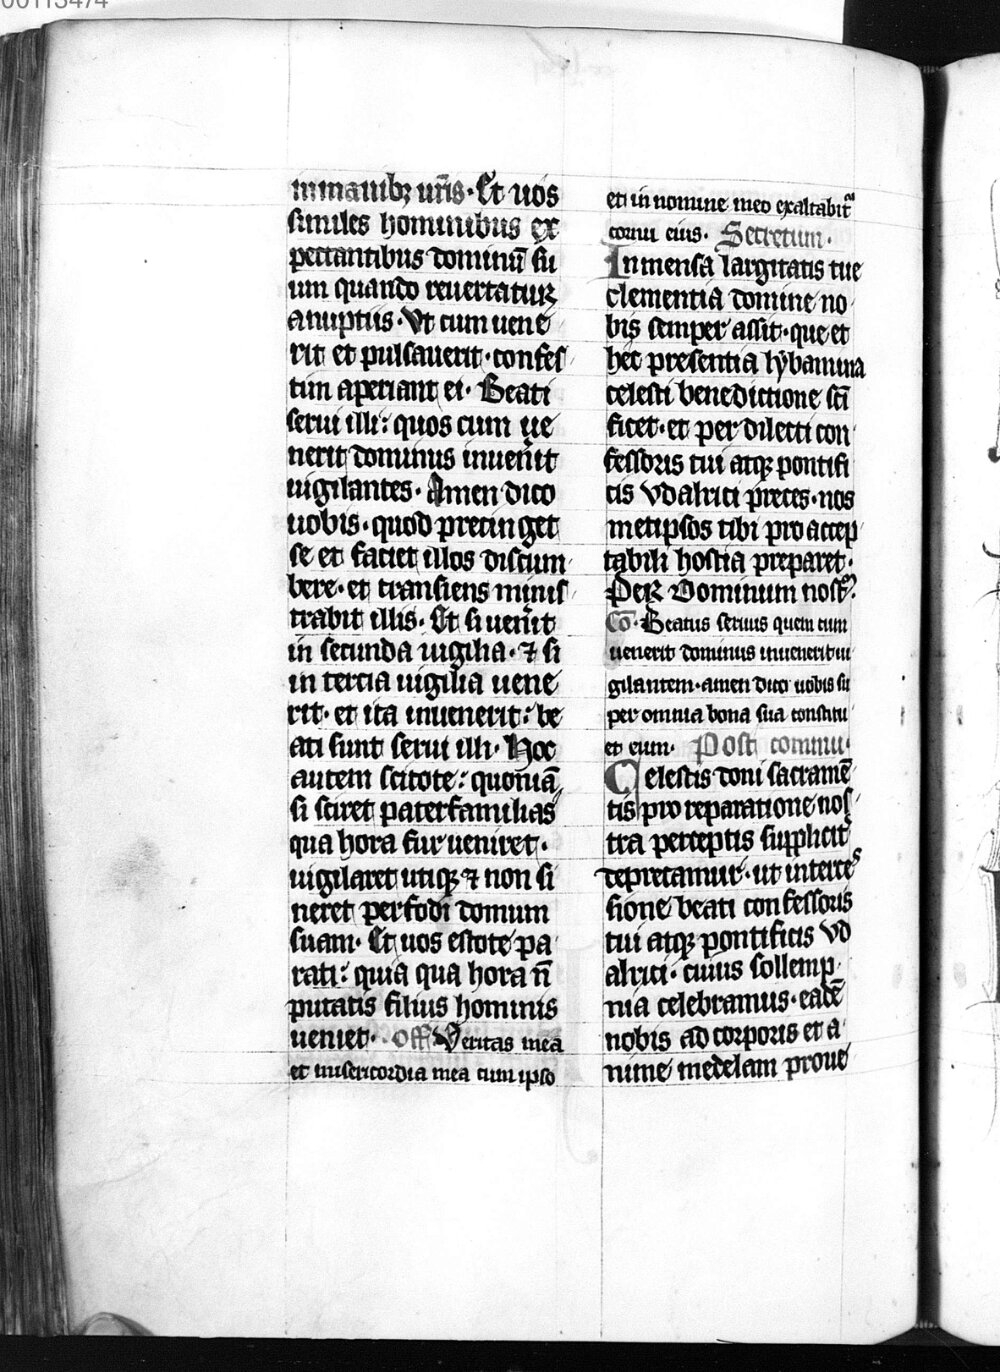 00113474
minauibꝫ ur̄is· Et uos
similes hominibus ex
pectantibus dominū su
um quando reuertatur
anuptiis· Vt cum uene
rit et pulsauerit· confes
tim aperiant ei· Beati
serui illi: quos cum ue
nerit dominus inuenit
uigilantes· Amen dico
uobis· quod precinget
se et faciet illos discum
bere· et transiens minis
trabit illis· Et si uenit
in secunda uigilia· ⁊ si
in tercia uigilia uene
rit· et ita inuenerit: be
ati sunt serui illi· Hoc
autem scitote: quoniā
si sciret paterfamilias
qua hora fur ueniret·
uigilaret utiqꝫ ⁊ non si
neret perfodi domum
suam· Et uos estote pa
rati: quia qua hora n̄
putatis filius hominis
ueniet· Off Veritas mea
et misericordia mea cum ipso
et in nomine meo exaltabitᷣ
cornu eius· Secretum·
Inmensa largitatis tue
clementia domine no
bis semper assit· que et
hec presentia lybamina
celesti benedictione sc̄i
ficet· et per dilecti con
fessoris tui atqꝫ pontifi
cis Vdalrici preces· nos
metipsos tibi pro accep
tabili hostia preparet·
Per Dominum nostꝝ·
Cō· Beatus seruus quem cum
uenerit dominus inuenerit ui
gilantem· amen dico uobis su
per omnia bona sua constitu
et eum· Post commu·
Celestis doni sacramē
tis pro reparatione nos
tra perceptis supplicit
deprecamur· ut interces
sione beati confessoris
tui atqꝫ pontificis Vd
alrici· cuius sollemp
nia celebramus· eadē
nobis ad corporis et a
nime medelam proue